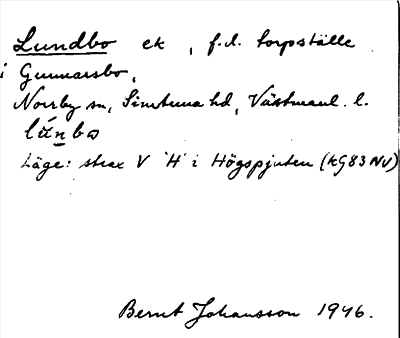 Lundbo ek , f.d. torpställe
i Gunnarsbo,
Norrby sn, Simtuna hd, Västmanl. l.
lúnbω
Läge: strax V 'H' i Högspjuten (kG83NV)
Bernt Johansson 1946.